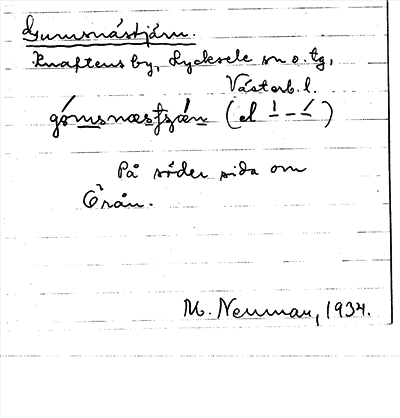 Gumsnästjärn.
Knaftens by, Lycksele sn o. tg,
Västerb. l.
gómsnæstjæ̀n (el ┴ - ∠)
På söder sida om
Örån.
M. Neuman, 1934.